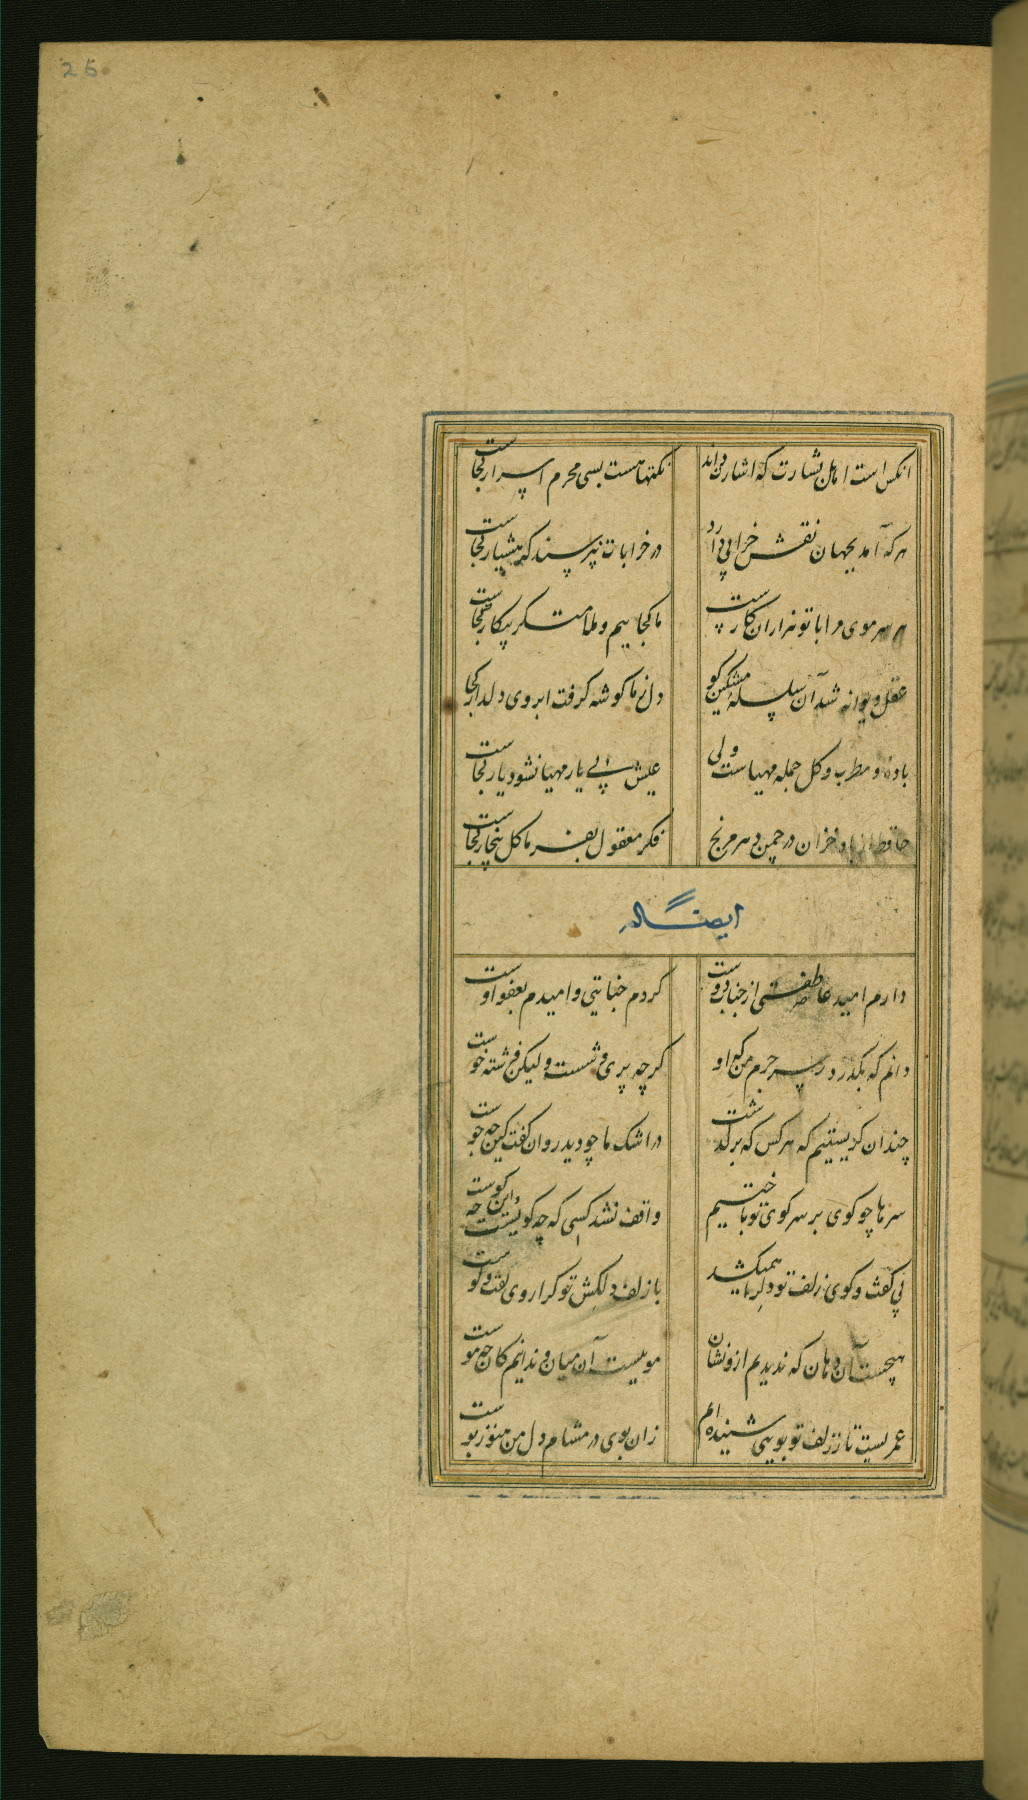 25
آنکس است اهل بشارت که اشارت داند نکتها هست بسی محرم اسرار کجاست
هر که آمد بجهان نقش خرابی دارد در خرابات نپرسند که هشیار کجاست
هر سر موی مرا با تو هزاران کارست ما کجاییم و ملامت‌گر بیکار کجاست
عقل دیوانه شد آن سلسلهٔ مشکین کو دل ز ما کوشه کرفت ابروی دلدار کجا
باده و مطرب و کل جمله مهیاست ولی عیش بی یار مهیا نشود یار کجاست
حافظ از باد خزان در چمن دهر مرنج فکر معقول بفرما کل بیخار کجاست
ایضاً له
دارم امید عاطفتی از جناب دوست کردم جنایتی و امیدم بعفو اوست
دانم که بکذرد ز سر جرم من که او کرچه پری وشست ولیکن فرشته خوست
چندان کریستیم که هر کس که برکذشت در اشک ما چو دید روان کفت کین چه جوست
سرها چو کوی بر سر کوی تو باختیم واقف نشد کسی که چه کویست و این چه کوست
بی کفت و کوی زلف تو دل را همیکشد با زلف دلکش تو کرا روی کفت و کوست
هیچست آن دهان که ندیدم ازو نشان موییست آن میان و ندانم که آن چه موست
عمریست تا ز زلف تو بویی شنیده‌ام زان بوی در مشام دل من هنوز بوست